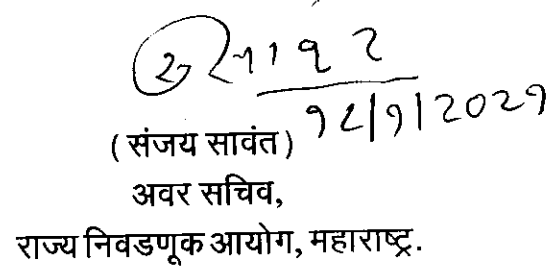 १८/१/२०२१
(संजय सावंत)
अवर सचिव,
राज्य निवडणूक आयोग, महाराष्ट्र.